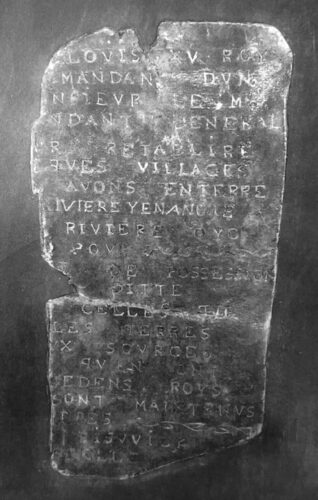 LOVIS XV ROY
MANDAN DVN
NSIEVR LE M
NDANT GENERAL
R RETABLIRE
QVES VILLAGES
AVONS ENTERRE
IVIERE YENANGUE
RIVIERE OYO
POUR
DE POSSESSION
DITTE
CELLES QUI
LES TERRES
X SOURCES
QUIN
EDENS ROYS
SONT MAINTENVS